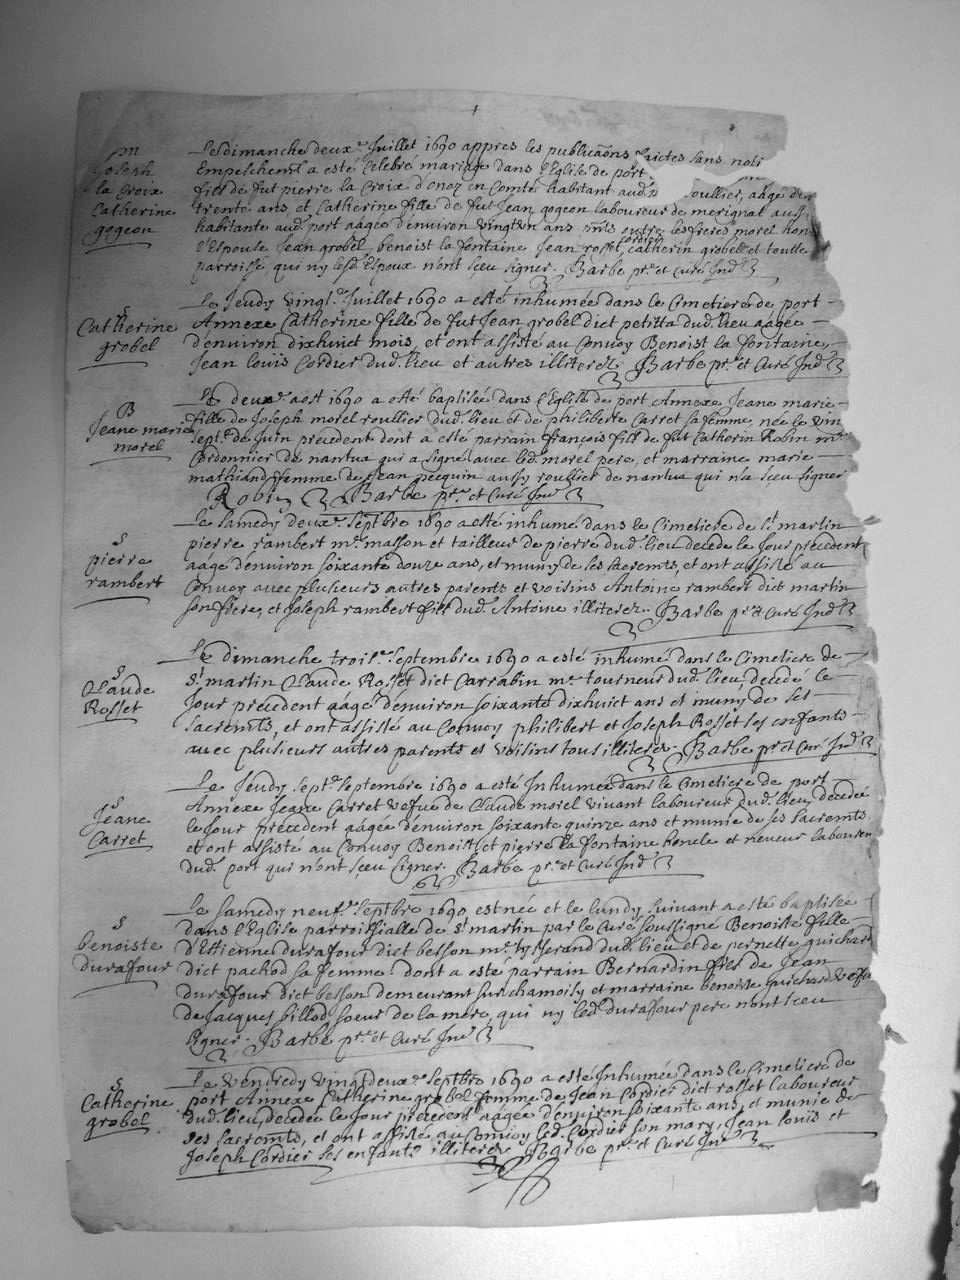 m
Joseph
la Croix
Catherine
gogeon
Le dimanche deux.e Juillet 1690 appres les publicaõns faictes sans
Empeschemt. a esté Celebré mariage dans l'Eglise de port
fils de fut pierre la Croix d'onoz en Comté habitant aud. p soullier, aagé de
trente ans, et Catherine fille de fut Jean gogeon laboureur de merignat
habitante aud. port aagée d'environ vingt un ans les freres morel
l'espouse Jean grobel, benoist la fontaine Jean rosset, Cordier catherin grobel et toutte
parroisse, qui ny lesd. Espoux n'ont sçeu signer. Barbe ptre. et Curé Indt.
S
Catherine
grobel
Le Jeudy vingt.e Juillet 1690 a esté inhumée dans le Cimetiere de port
Annexe Catherine fille de fut Jean grobel dict petitta dud. lieu aagée
d'environ dixhuict mois, et ont assisté au Convoy Benoist la fontaine,
Jean louis Cordier dud. lieu et autres illiterez. Barbe ptre. et Curé Indt.
B
Jeane marie
morel
Le deux.e aost 1690 a esté baptisée dans l'Eglise de port Annexe Jeane marie
fille de Joseph morel roullier dud. lieu et de philiberte Carret sa femme, née le vin
sept.e de Juin precedent dont a esté parrain françois fils de fut Catherin Robin mre.
Cordonnier de nantua qui a signé avec led. morel pere, et marraine marie
mathiand femme de Jean pecquin aussy roullier de nantua qui n'a sçeu signer
Robin Barbe ptre. et Curé Indt.
S
pierre
rambert
Le samedy deux.e septbre 1690 a esté inhumé dans le Cimetiere de St. martin
pierre rambert me. masson et tailleur de pierre dud. lieu decedé le Jour precedent
aagé d'environ soixante douze ans, et muny de ses sacremts, et ont assisté au
Convoy avec plusieurs autres parents et voisins Antoine rambert dict martin
son frere, et Joseph rambert fils dud. Antoine illiterez. Barbe ptre. et Curé Indt.
S
Claude
Rosset
Le dimanche trois.e septembre 1690 a esté inhumé dans le Cimetiere de
St. martin Claude Rosset dict Carrabin me. tourneur dud. lieu, decedé le
Jour precedent aagé d'environ soixante dixhuict ans et muny de ses
sacremts, et ont assisté au Convoy philibert et Joseph Rosset ses enfants
avec plusieurs autres parents et voisins tous illiterez. Barbe ptre. et Curé Indt.
S
Jeane
Carret
Le Jeudy sept.e septembre 1690 a esté Inhumée dans le Cimetiere de port
Annexe Jeane Carret vefue de Claude morel vivant laboureur dud. lieu, decedée
le Jour precedent aagée d'environ soixante quinze ans et munie de ses sacremts
et ont assisté au Convoy Benoist et pierre la fontaine honcle et neveur laboureu
dud. port qui n'ont sçeu signer. Barbe ptre. et Curé Indt.
S
benoiste
durafour
Le samedy neuf.e septbre 1690 est née et le lundy suivant a esté baptisée
dans l'Eglise parroissialle de St martin par le Curé soussigné Benoiste fille
d'Estienne durafour dict besson me. tysserand dud. lieu et de pernette guichard
dict pachod sa femme dont a esté parrain Bernardin fils de Jean
durafour dict besson demeurant sur chamoisy et marraine benoiste guichard vefu
de Jacques billod soeur de la mere, qui ny led. durafour pere n'ont sceu
signer. Barbe ptre. et Curé Indt.
S
Catherine
grobel
Le vendredy vingt deux.e septbre 1690 a esté Inhumée dans le Cimetiere de
port Annexe Catherine grobel femme de Jean Cordier dict rosset laboureur
dud. lieu, decedée le Jour precedent aagée d'environ soixante ans, et munie de
ses sacremts, et ont assisté au Convoy led. Cordier son mary, Jean louis et
Joseph Cordier ses enfants illiterez Barbe ptre. et Curé Indt.